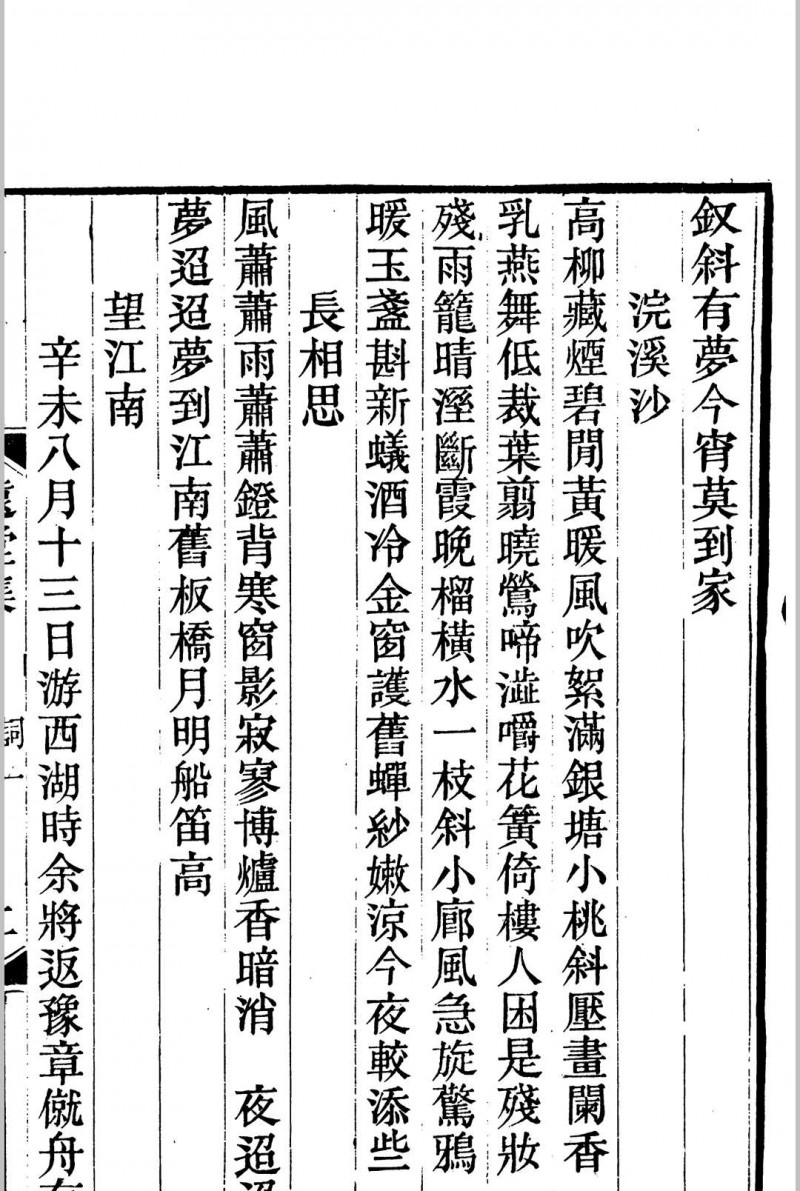 釵斜有夢今宵莫到家
浣溪沙
高柳藏煙碧閒黃暖風吹絮滿銀塘小桃斜壓畫闌香
乳燕舞低裁葉翦曉鶯啼澁嚼花簧倚樓人困是殘妝
殘雨籠晴溼斷霞晚榴橫水一枝斜小廊風急旋驚鴉
暖玉盞斟新蟻酒冷金窗護舊蟬紗嫩涼今夜較添些
長相思
風蕭蕭雨蕭蕭鐙背寒窗影寂寥博爐香暗消 夜迢迢
夢迢迢夢到江南舊板橋月明船笛高
望江南
辛未八月十三日游西湖時余將返豫章僦舟
詞一